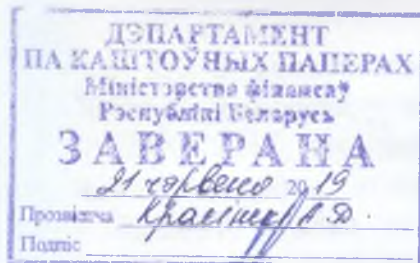 ДЭПАРТАМЕНТ
ПА КАШТОЎНЫХ ПАПЕРАХ
Міністэрства фінансаў
Рэспублікі Беларусь
ЗАВЕРАНА
21 чэрвеня 2019
Прозвішча
Подпіс